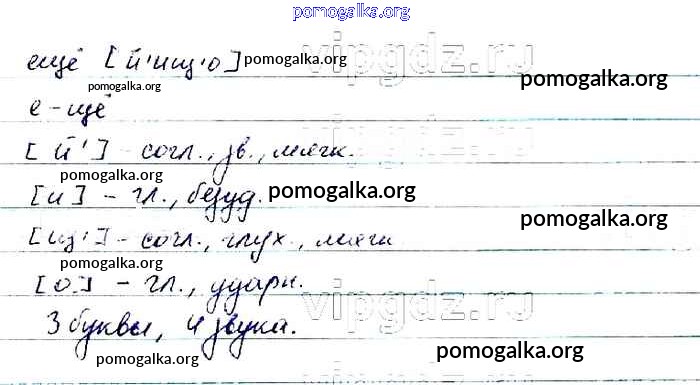 pomogalka.org
ещё [й'ищ'о] pomogalka.org
vipgdz.ru
pomogalka.org pomogalka.org
е-щё
[й'] - согл., зв., мягк.
pomogalka.org
[и] - гл., безуд. pomogalka.org
[щ'] - согл., глух., мягк
pomogalka.org
pomogalka.org
[о] - гл., ударн.
vipgdz.ru
3 буквы, 4 звука.
pomogalka.org pomogalka.org
vipgdz.ru